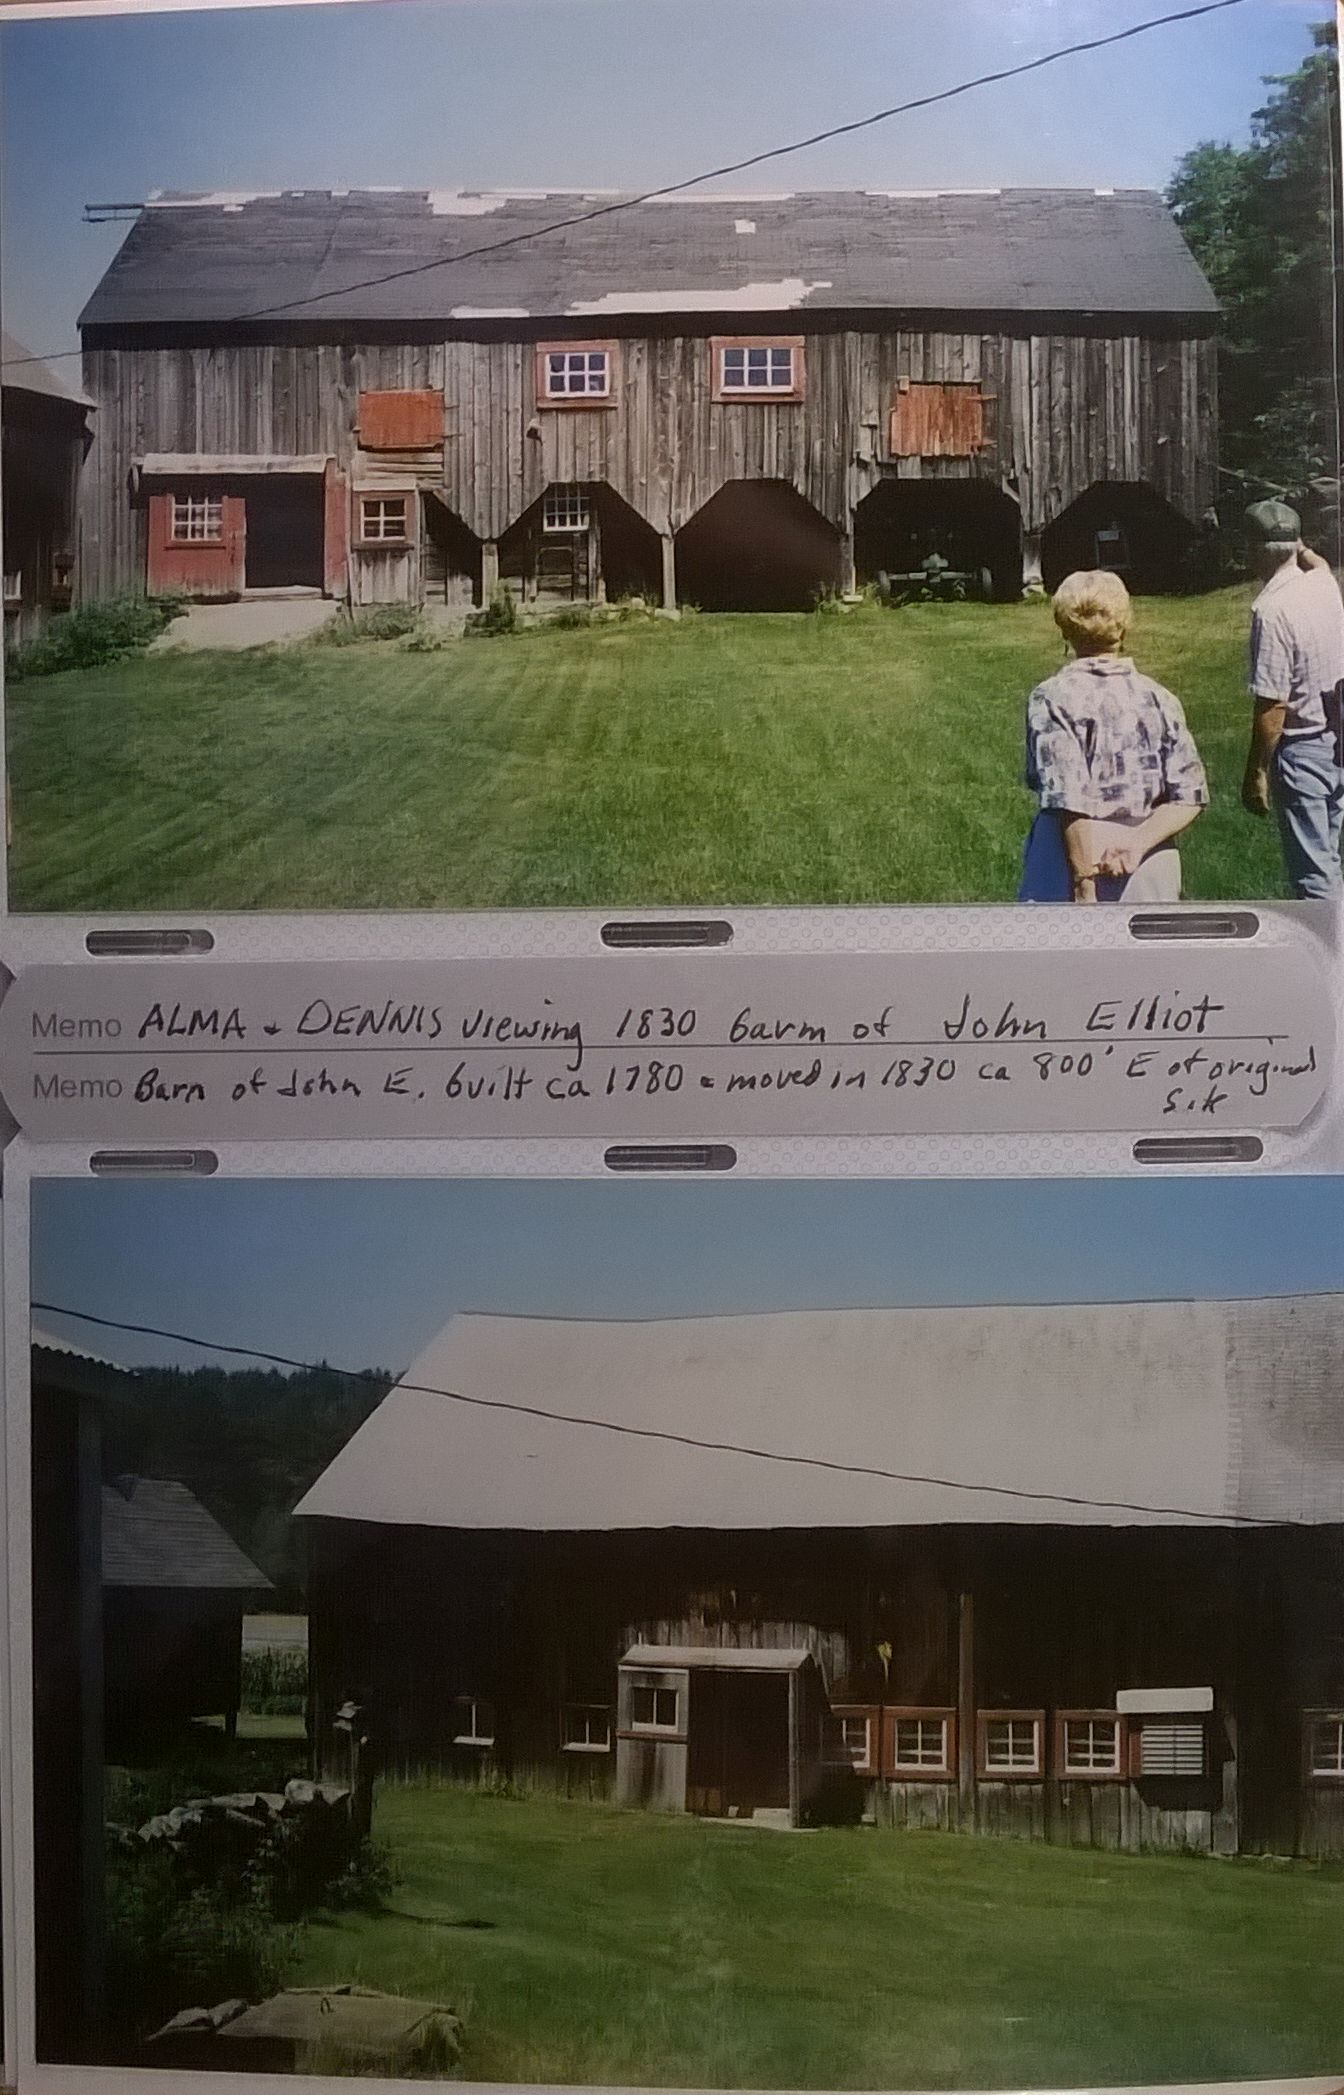 Memo ALMA + DENNIS viewing 1830 barm of John Elliot
Memo Barn of John E. built ca 1780 & moved in 1830 ca 800' E of original
site